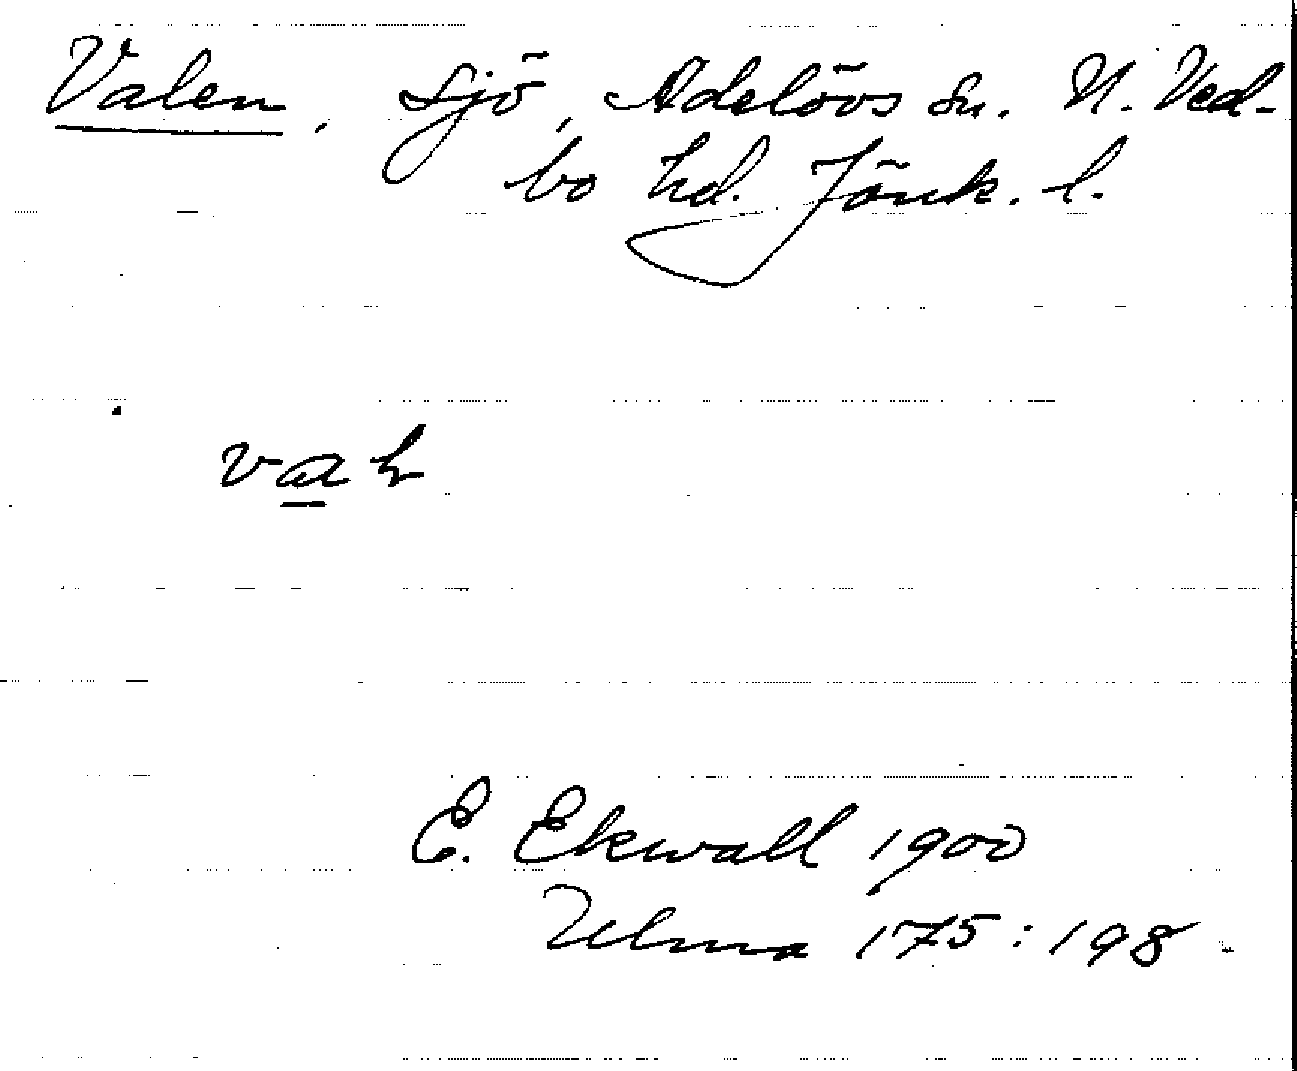 Valen, sjö, Adelövs sn. N. Ved-
bo hd. Jönk. l.
E. Ekwall 1900
Ulma 175:198